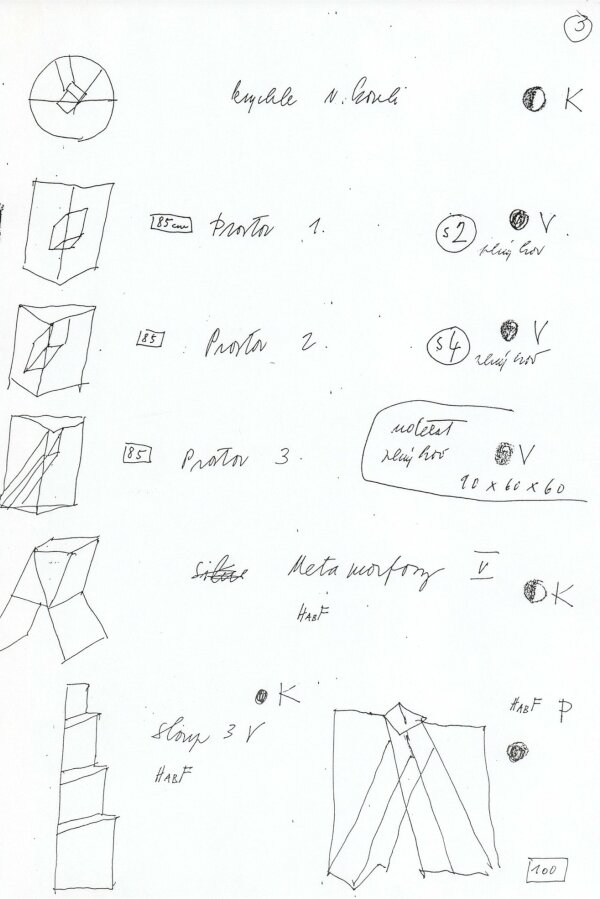 3
krychle v. kouli K
85cm Prostor 1. s2 V.
plný kov
85 Prostor 2. s4 V
plný kov
85 Prostor 3. nočást
plný kov V
90 x 60 x 60
Metamorfozy V K
HABF
K
sloup 3 V
HABF
HABF P
100